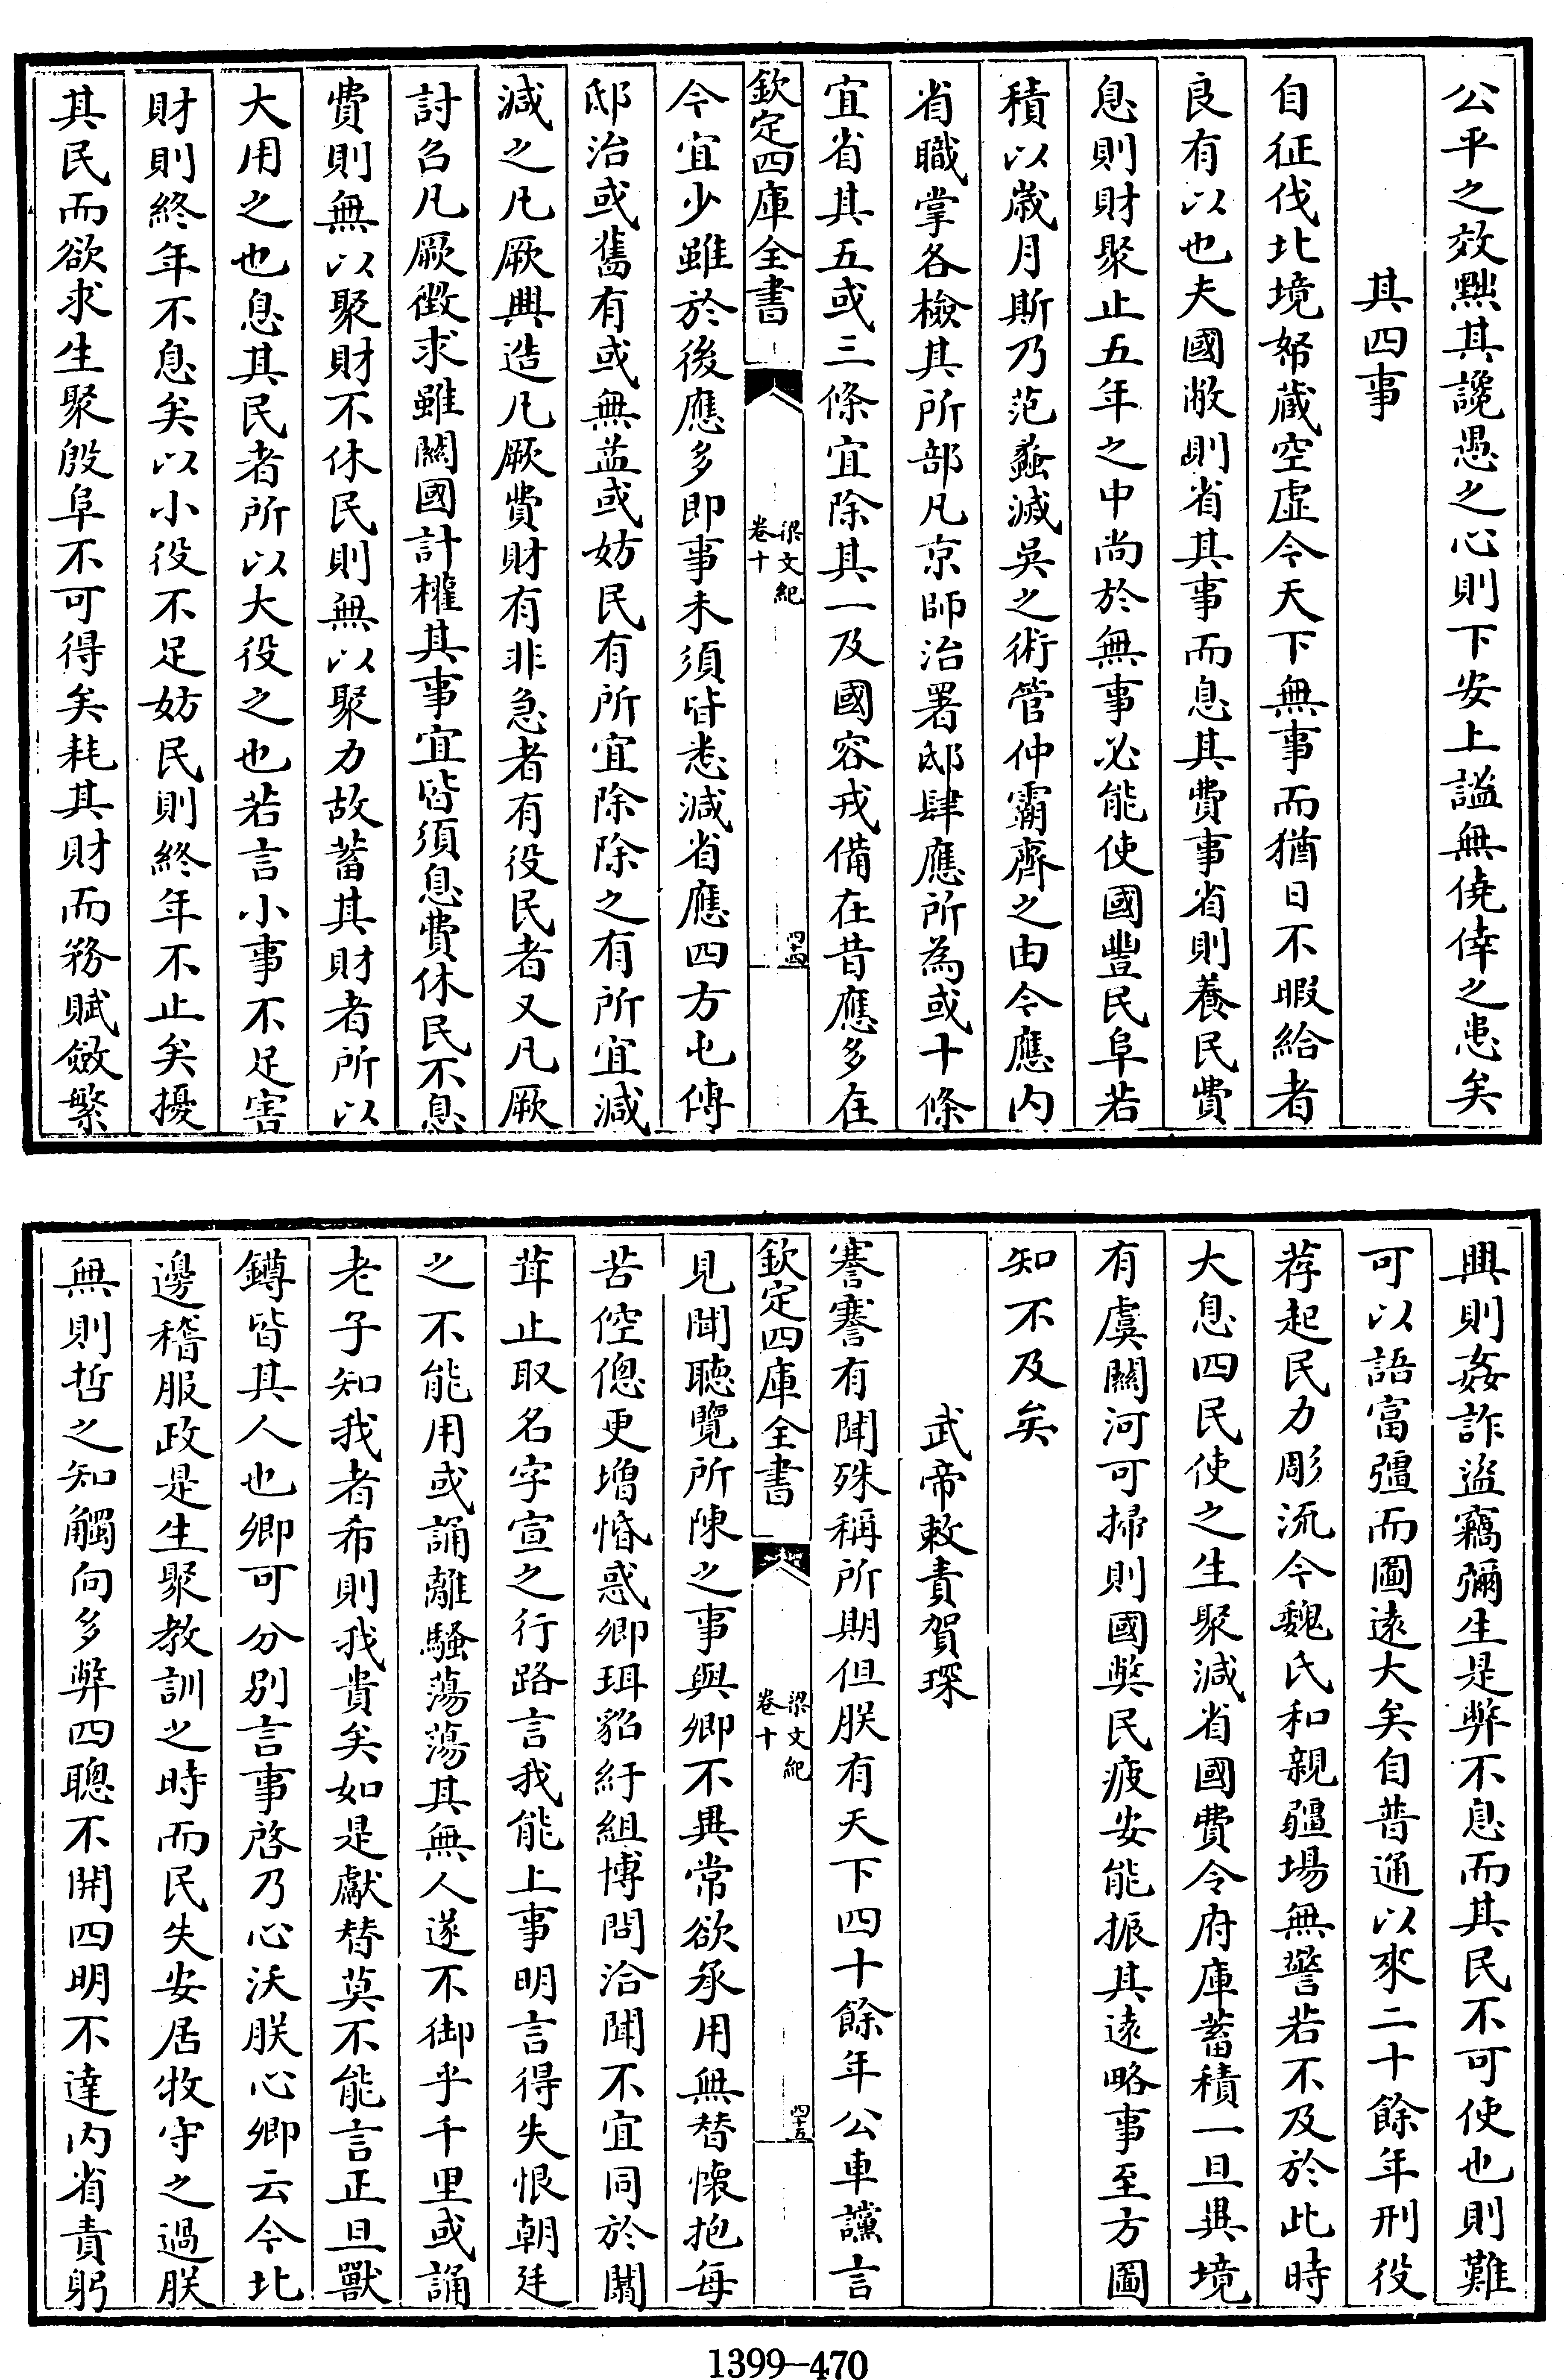 公平之效黜其讒愚之心則下安上謐無僥倖之患矣
其四事
自征伐北境帑蔵空虛今天下無事而猶日不暇給者
良有以也夫國敝則省其事而息其費事省則養民費
息則財聚止五年之中尚於無事必能使國豐民阜若
積以歲月斯乃范蠡滅吳之術管仲霸齊之由今應内
省職掌各檢其所部凡京師治署邸肆應所為或十條
宜省其五或三條宜除其一及國容戎備在昔應多在
欽定四庫全書
梁文紀
卷十
四十四
今宜少雖於後應多即事未須皆悉減省應四方屯傳
邸治或舊有或無益或妨民有所宜除除之有所宜減
減之凡厥興造凡厥費財有非急者有役民者又凡厥
討召凡厥徵求雖關國計權其事宜皆須息費休民不息
費則無以聚財不休民則無以聚力故蓄其財者所以
大用之也息其民者所以大役之也若言小事不足害
財則終年不息矣以小役不足妨民則終年不止矣擾
其民而欲求生聚殷阜不可得矣耗其財而務賦斂繁
興則姦詐盜竊彌生是弊不息而其民不可使也則難
可以語富彊而圖遠大矣自普通以來二十餘年刑役
荐起民力彫流今魏氏和親疆場無警若不及於此時
大息四民使之生聚減省國費令府庫蓄積一旦異境
有虞關河可掃則國弊民疲安能振其遠略事至方圖
知不及矣
武帝敕責賀琛
謇謇有聞殊稱所期但朕有天下四十餘年公車讜言
欽定四庫全書
梁文紀
卷十
四十五
見聞聽覽所陳之事與卿不異常欲承用無替懷抱每
苦倥傯更增惛惑卿珥貂紆組博問洽聞不宜同於闒
茸止取名字宣之行路言我能上事明言得失恨朝廷
之不能用或誦離騷蕩蕩其無人遂不御乎千里或誦
老子知我者希則我貴矣如是獻替莫不能言正旦獸
鐏皆其人也卿可分別言事啓乃心沃朕心卿云今北
邊稽服政是生聚教訓之時而民失安居牧守之過朕
無則哲之知觸向多弊四聰不開四明不達内省責躬
1399—470